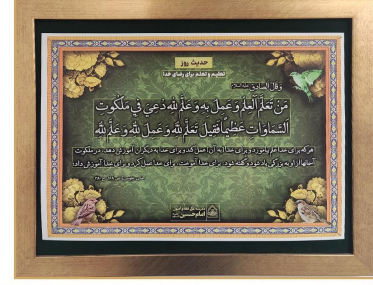 حدیث روز
تعلیم و تعلم برای رضای خدا
وَقَالَ الصَّادِقُ
مَنْ تَعَلَّمَ الْعِلْمَ وَعَمِلَ بِهِ وَعَلَّمَ لِلَّهِ دُعِيَ فِي مَلَكُوتِ
السَّمَاوَاتِ عَظِيماً فَقِيلَ تَعَلَّمَ لِلَّهِ وَعَمِلَ لِلَّهِ وَعَلَّمَ لِلَّهِ
هر که برای خدا علم بیاموزد و برای خدا به آن عمل کند و برای خدا به دیگران آموزش دهد، در ملکوت
آسمانها از او به بزرگی یاد شود و گفته شود: برای خدا آموخت، برای خدا عمل کرد و برای خدا آموزش داد
امام حسن